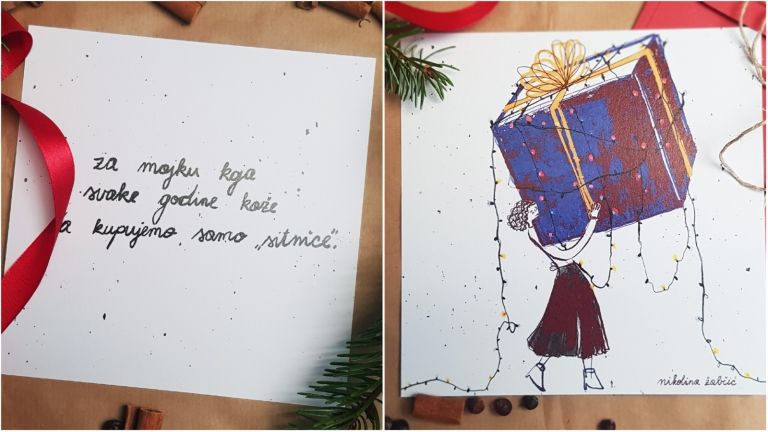 za majku koja
svake godine kaže
da kupujemo samo „sitnice".
nikolina žabčić